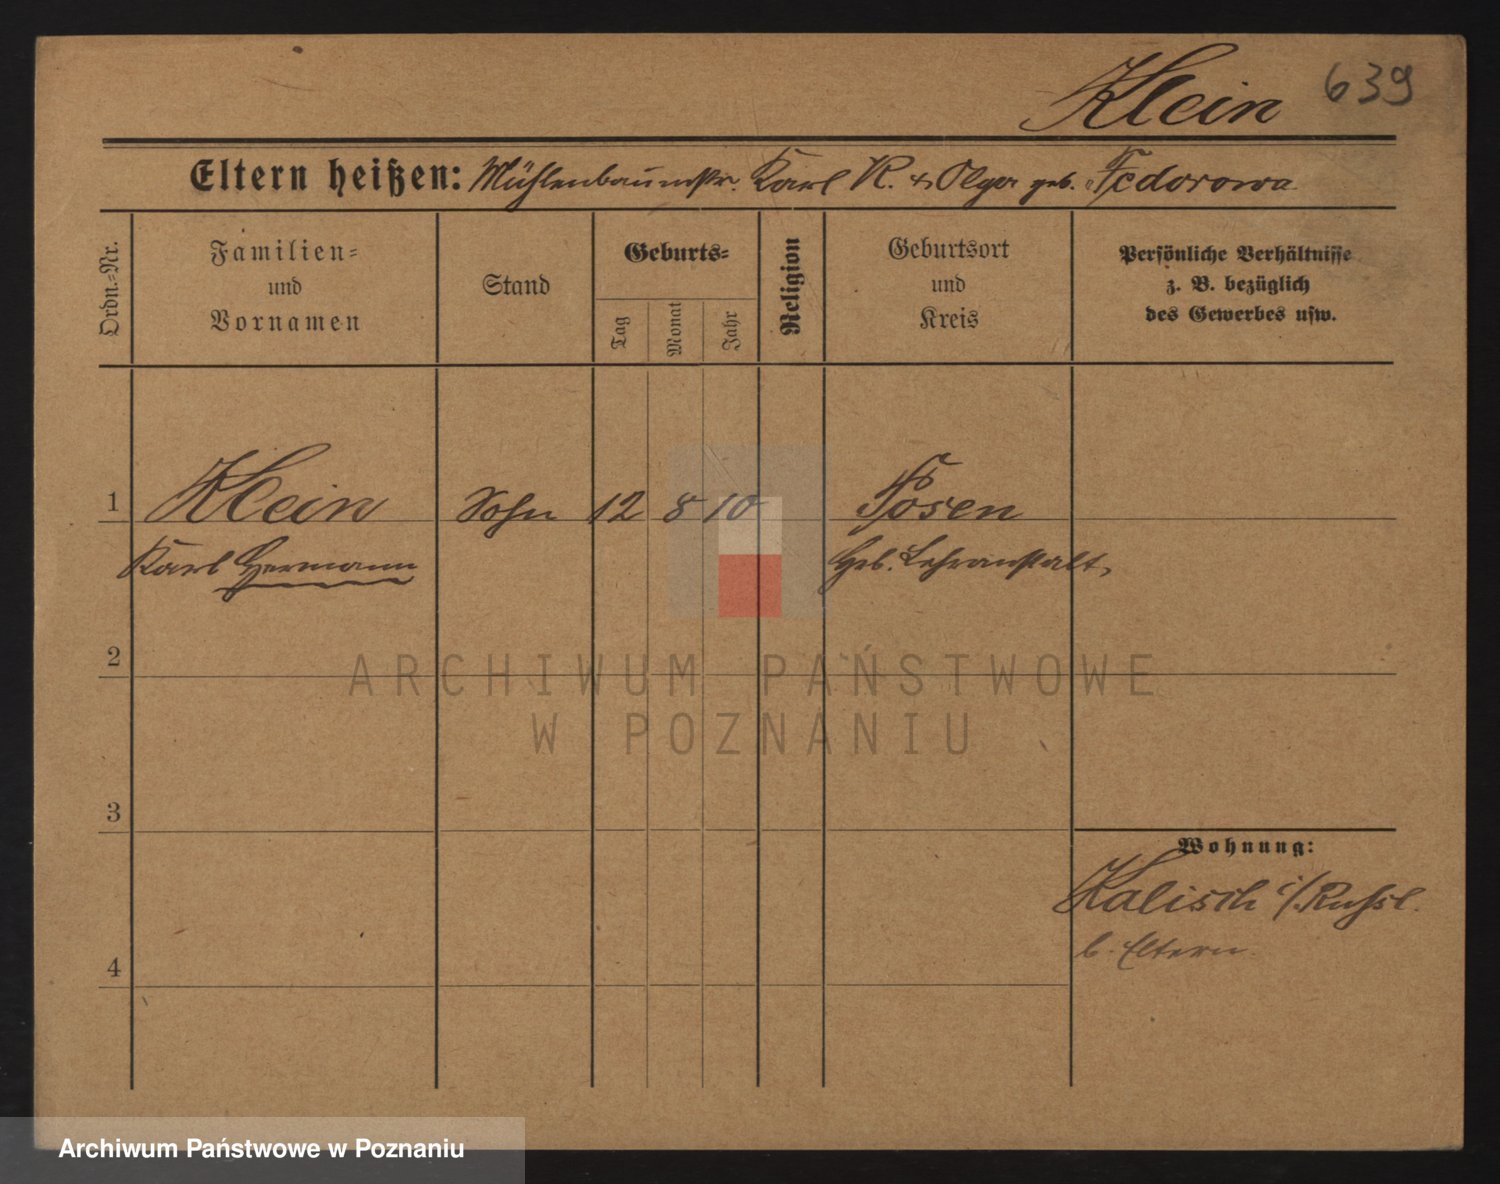 Klein 639
Eltern heißen: Mühlenbaumstr. Karl K. & Olga geb. Fedorowa
Ordn.-Nr.
Familien-
und
Vornamen
Stand
Geburts-
Tag
Monat
Jahr
Religion
Geburtsort
und
Kreis
Persönliche Verhältnisse
z. B. bezüglich
des Gewerbes usw.
1 Klein Sohn 12 8 10 Posen
Karl Hermann Geb. Lehranstalt
2
ARCHIWUM PAŃSTWOWE
W POZNANIU
3
Wohnung:
Kalisch i/Russl.
b. Eltern
4
Archiwum Państwowe w Poznaniu